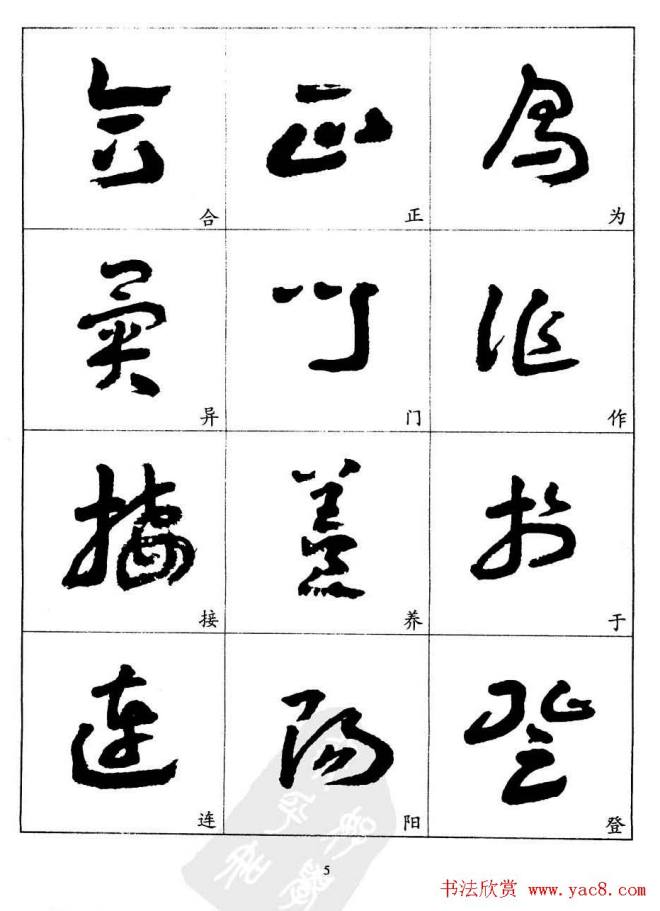 合 正 为
异 门 作
接 养 于
连 阳 登
5
书法欣赏 www.yac8.com